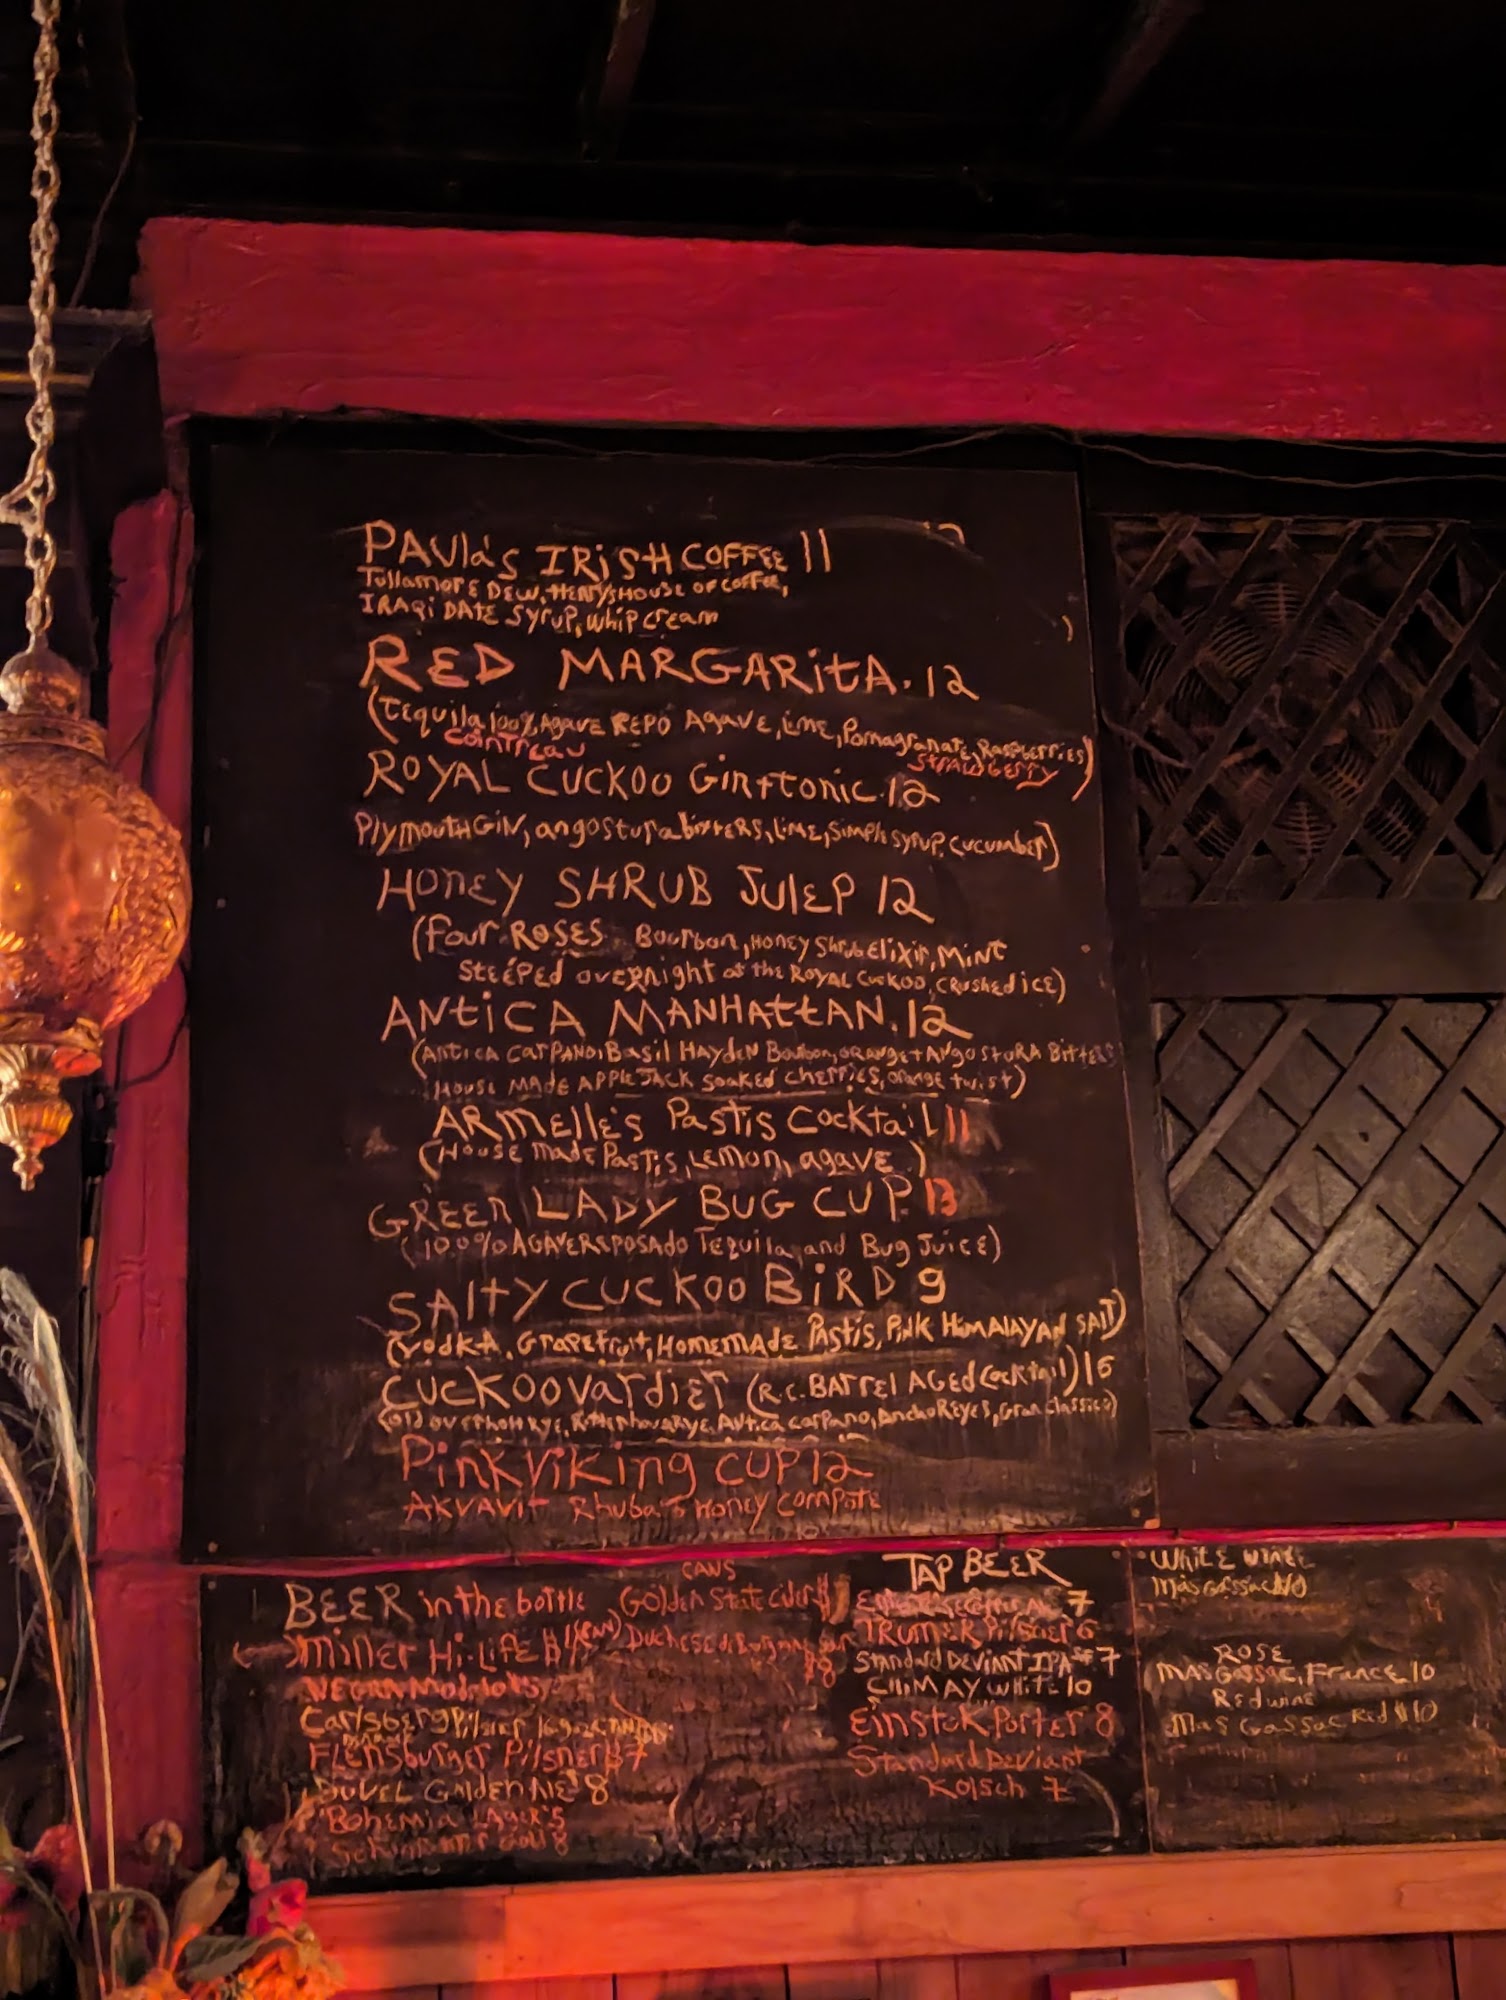 PAUla's IRiSH COFFEE 11
Tullamore DEW, HENRYSHOUSE OF COFFEE,
IRAQi DATE Syrup, whip cream
RED MARGARitA. 12
(TEquila 100% Agave REPO Agave, Lime, Pomagranate, Raspberries)
COINTREAU
STRAWBERRY
ROYAL CUCKOO Gin+tonic. 12
PlymouthGiN, angostura bitters, Lime, Simple syrup, cucumber)
HONEY SHRUB JULEP 12
(Four ROSES Bourbon, HONEY Shrub Elixir, MiNT
STEEPED overnight at the ROYAL CUCKOO, CRUSHED iCE)
ANtiCA MANHAttAN. 12
(ANTiCA CARPANO, Basil HAYDEN Bourbon, ORANGE + ANGOSTURA BittERS
HOUSE MADE APPLE JACK SOAKED CHERRIES, orange twist)
ARMEllE's Pastis Cocktail 11
(HOUSE made Pastis, LEMON, agave)
GREEN LADY BUG CUP. 13
(100% AGAVE REPOSADO TEquila, and Bug Juice)
SALtY CUCKOO BiRD 9
(VodkA, GRAPEFruit, HOMEMADE PAStiS, PiNK HiMALAYAN SAlT)
CUCKOOVardier (R.C. BARrEL AGEd Cocktail) 16
(Old OVERHOlt RYE, RittenhouseRYE, ANtica Carpano, AnchoREyES, Gran Classico)
PinkViKing CUP 12
AKVAViT Rhubarb Honey Compote
BEER in the bottle
Miller Hi-LiFE
Carlsberg Pilsner
FLENSburger PilsnEr $7
DUVEL GOLDEN AlE 8
Bohemia LAGER 5
CANS
Golden State Cider
Duchesse de Bourgogne
TAP BEER
TRUMER Pilsner 6
Standard DEViant IPA 7
CHiMAY WhitE 10
Einstok Porter 8
Standard DEViant
Kolsch 7
WhitE WiNE
Mas Gassac 10
ROSE
MAS GaSSAC, FraNCE 10
Red wine
Mas Gassac Red $10